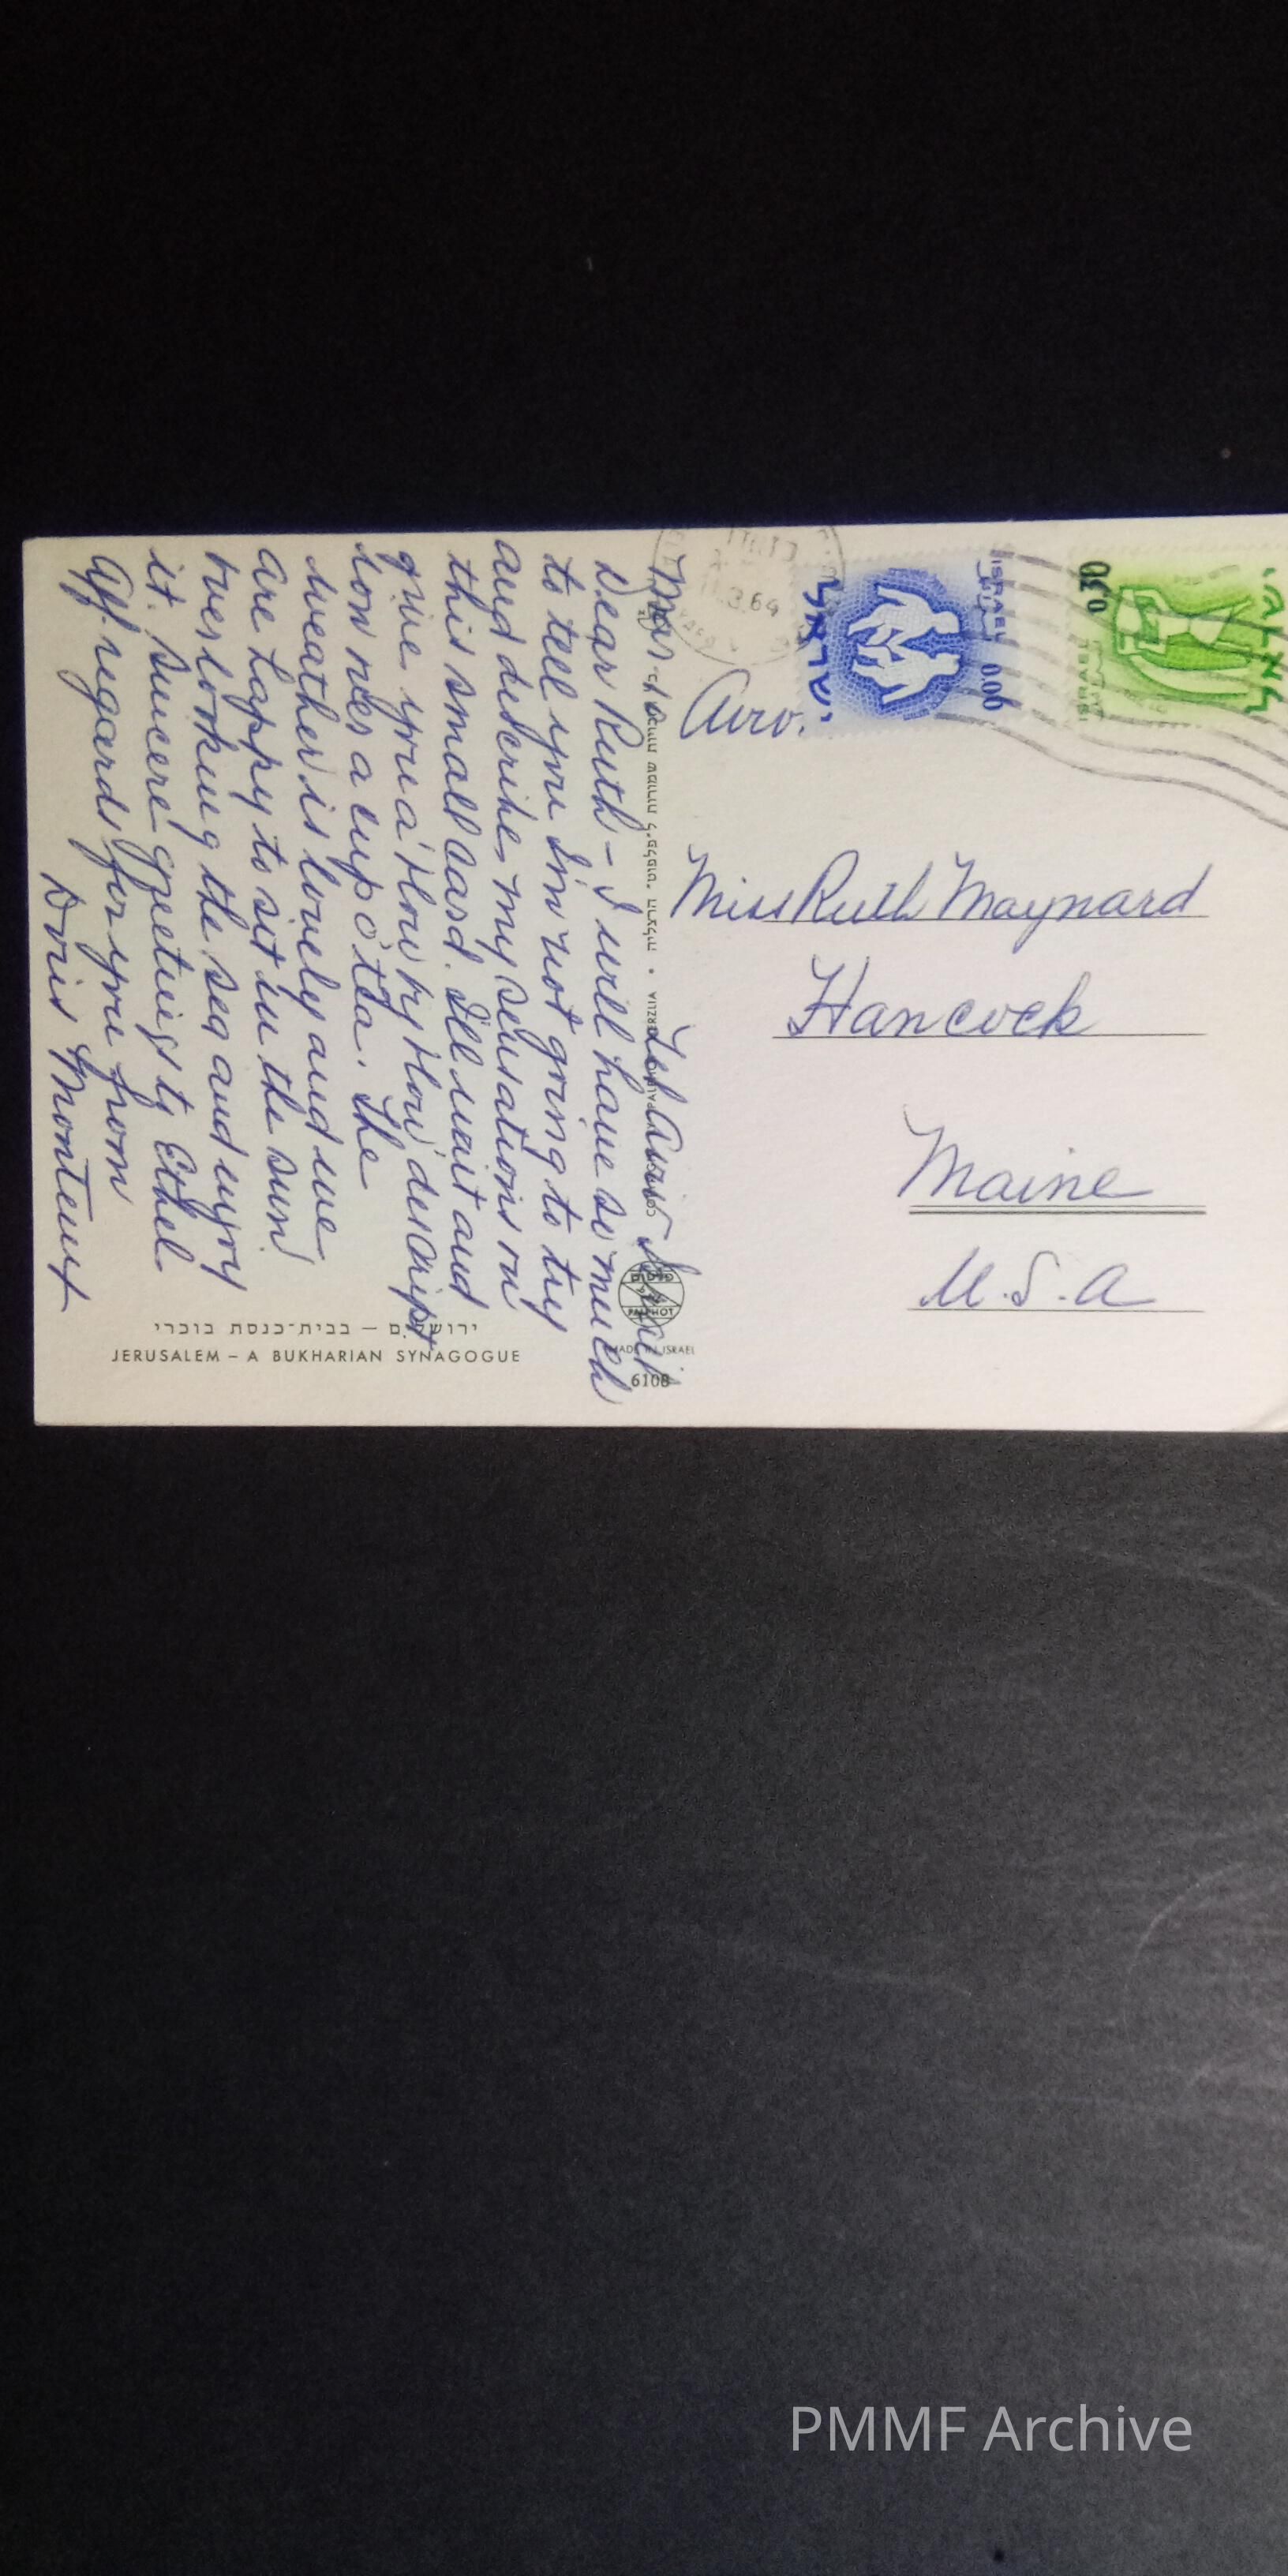 Mar
Tel Aviv
Dear Ruth - I will have so much
to tell you I'm not going to try
and describe my sensations on
this small card. I'll wait and
give you a 'blow by blow' descript
ion over a cup o' tea. The
weather is lovely and we
are happy to sit in the sun
overlooking the sea and enjoy
it. Sincere greetings to Ethel
Aff. regards for you from
Doris Monteux
ירושלים — בבית־כנסת בוכרי
JERUSALEM – A BUKHARIAN SYNAGOGUE
PALPHOT
MADE IN ISRAEL
6108
3.64
ישראל
ISRAEL
0.06
0.30
Miss Ruth Maynard
Hancock
Maine
U.S.A
PMMF Archive